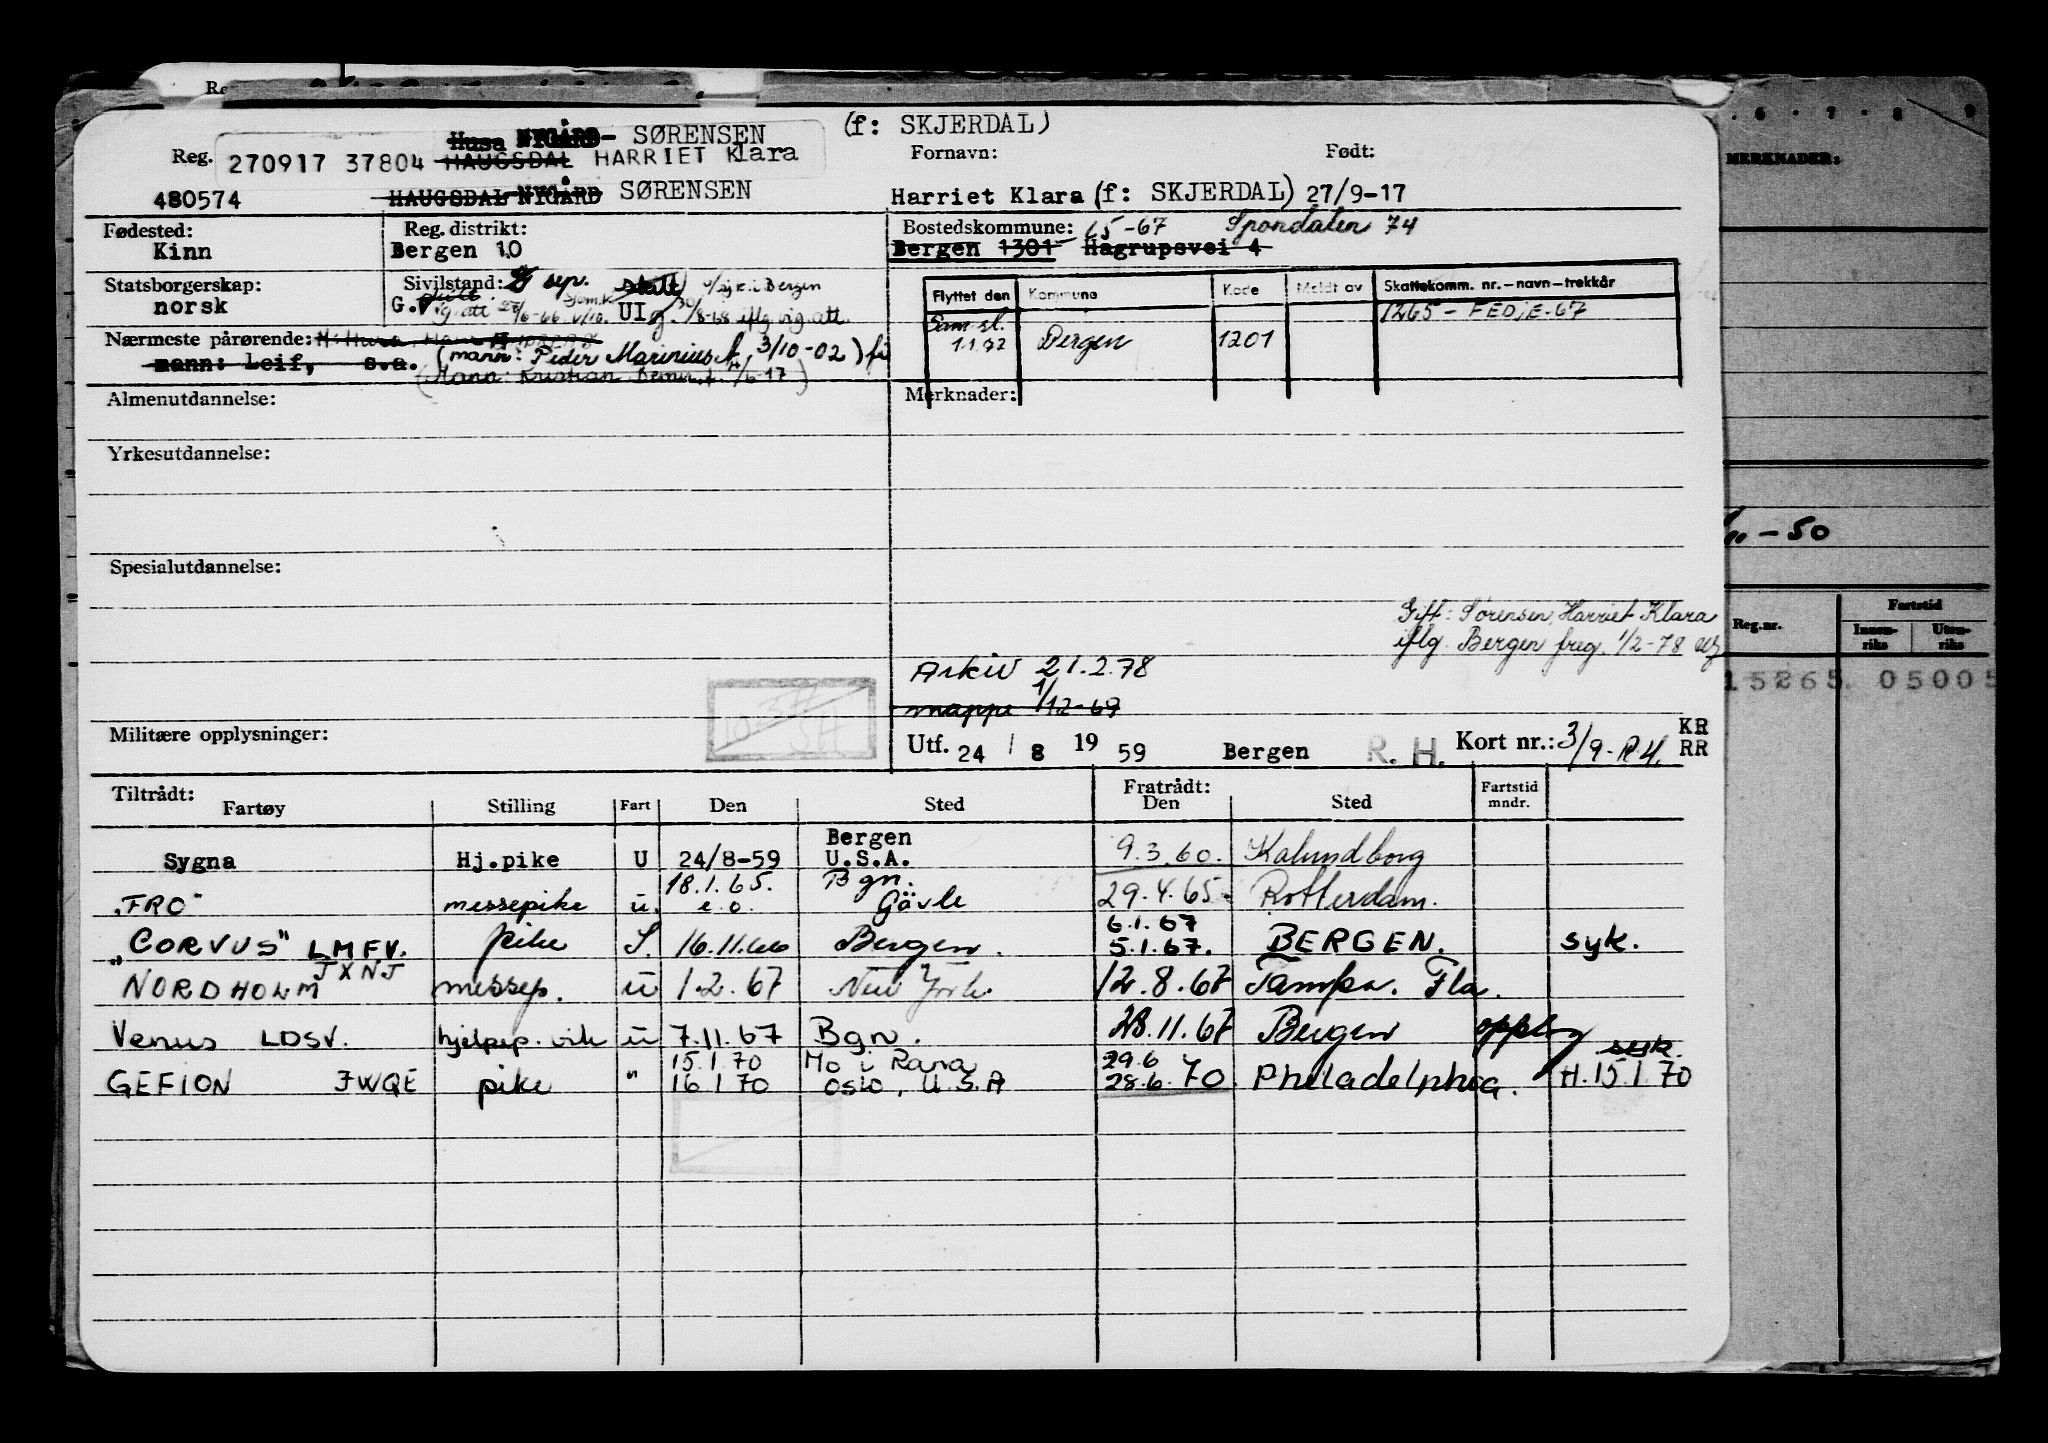 Husa NYGÅRD- SØRENSEN (f: SKJERDAL)
Reg. 270917 37804 HAUGSDAL HARRIET Klara Fornavn: Født:
480574 HAUGSDAL NYGÅRD SØRENSEN Harriet Klara (f: SKJERDAL) 27/9-17
Fødested: Reg. distrikt: Bostedskommune: 65-67 Spondalen 74
Kinn Bergen 10 Bergen 1301 Hagrupsvei 4
Statsborgerskap: Sivilstand: sep. i Bergen
norsk G. UI 30/8-68 iflg vig.att.
Flyttet den Kommune Kode Meldt av Skattekomm. nr.-navn-trekkår
1265 - FEDJE-67
Sam.sl.
1.1.72 Bergen 1201
Nærmeste pårørende:
mann: Leif, s.a. (mann: Peder Marinius f, 3/10-02)
(Mann: Kristian
Almenutdannelse: Merknader:
Yrkesutdannelse:
Spesialutdannelse:
Gift: Sørensen, Harriet Klara
iflg. Bergen freg. 1/2-78
Arkiv 21.2.78
mappe 1/12-69
Militære opplysninger: Utf. 24 / 8 19 59 Bergen R. H. Kort nr.: 3/9-R.H. KR
RR
Tiltrådt: Fratrådt:
Fartøy Stilling Fart Den Sted Den Sted Fartstid mndr.
Bergen
Sygna Hj.pike U 24/8-59 U.S.A. 9.3.60. Kalundborg
18.1.65. Bgn.
"FRO" messepike u. e.o. Gävle 29.4.65 Rotterdam.
6.1.67
"CORVUS" LMFV. pike S. 16.11.66 Bergen. 5.1.67. BERGEN. syk.
JXNJ
NORDHOLM messep. u 1.2.67 New York. 12.8.67 Tampa. Fla.
Venus LDSV. hjelpep. vik u 7.11.67 Bgn. 28.11.67 Bergen oppsig
syk.
15.1.70 Mo i Rana 29.6
GEFION JWQE pike " 16.1.70 OSLO, U.S.A 28.6.70. Philadelphia. H.15.1.70
6 . 7 . 8 9
MERKNADER:
-50
Reg.nr. Fartstid
Innenriks Utenriks
15265 05005